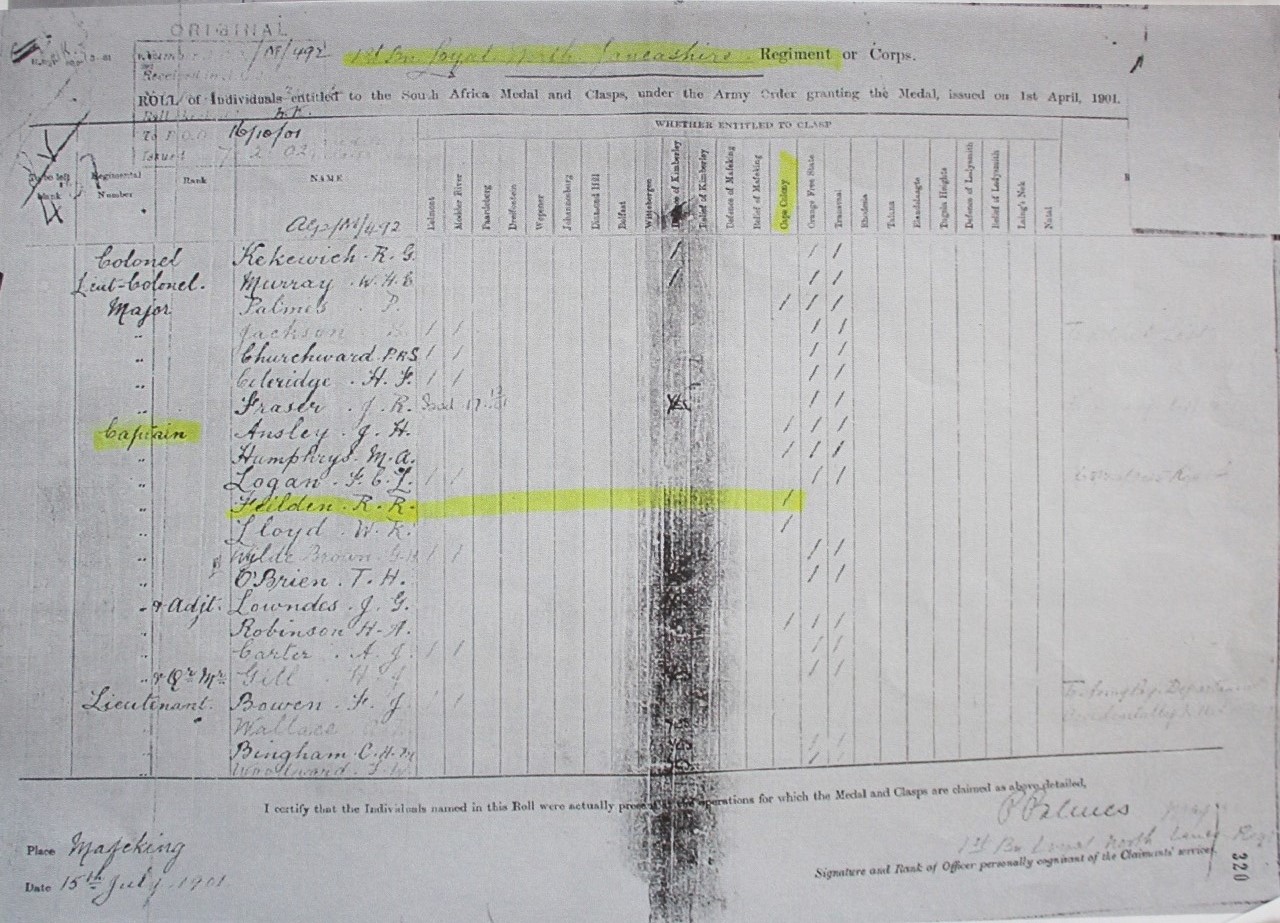 ORIGINAL
/M/492
1st Bn Loyal North Lancashire Regiment or Corps.
ROLL of Individuals entitled to the South Africa Medal and Clasps, under the Army Order granting the Medal, issued on 1st April, 1901.
16/10/01
Issued 7 2 02
WHETHER ENTITLED TO CLASP
To be left blank
Regimental Number
Rank
NAME
Belmont
Modder River
Paardeberg
Driefontein
Wepener
Johannesburg
Diamond Hill
Belfast
Wittebergen
Defence of Kimberley
Relief of Kimberley
Defence of Mafeking
Relief of Mafeking
Cape Colony
Orange Free State
Transvaal
Rhodesia
Talana
Elandslaagte
Tugela Heights
Defence of Ladysmith
Relief of Ladysmith
Laing's Nek
Natal
/M/492
Colonel Kekewich. R. G. / / /
Lieut-Colonel. Murray. W. H. E / / /
Major Palmes. P. / / /
" Jackson / / / /
" Churchward. P.R.S / / / /
" Coleridge. H. F. / / / /
" Fraser. J. R. / /
Captain Ansley. J. H. / / /
" Humphrys. M. A. / / /
" Logan. F. C. L. / / / /
" Feilden. R. R. /
" Lloyd. W. R. /
" Wylde Brown / / / /
" O'Brien. T. H. / /
" & Adjt. Lowndes. J. G.
" Robinson. H. A. / / /
" Carter. A. J. / / / /
" & Qr Mr Gill. H J / /
Lieutenant. Bowen. F. J. /
Wallace
" Bingham. C. H. M / /
" Woodward. F. W.
I certify that the Individuals named in this Roll were actually present at the operations for which the Medal and Clasps are claimed as above detailed,
P Palmes
1st Bn Loyal North Lanc Reg
Place Mafeking
Date 15th July 1901
Signature and Rank of Officer personally cognizant of the Claimants' services.
320